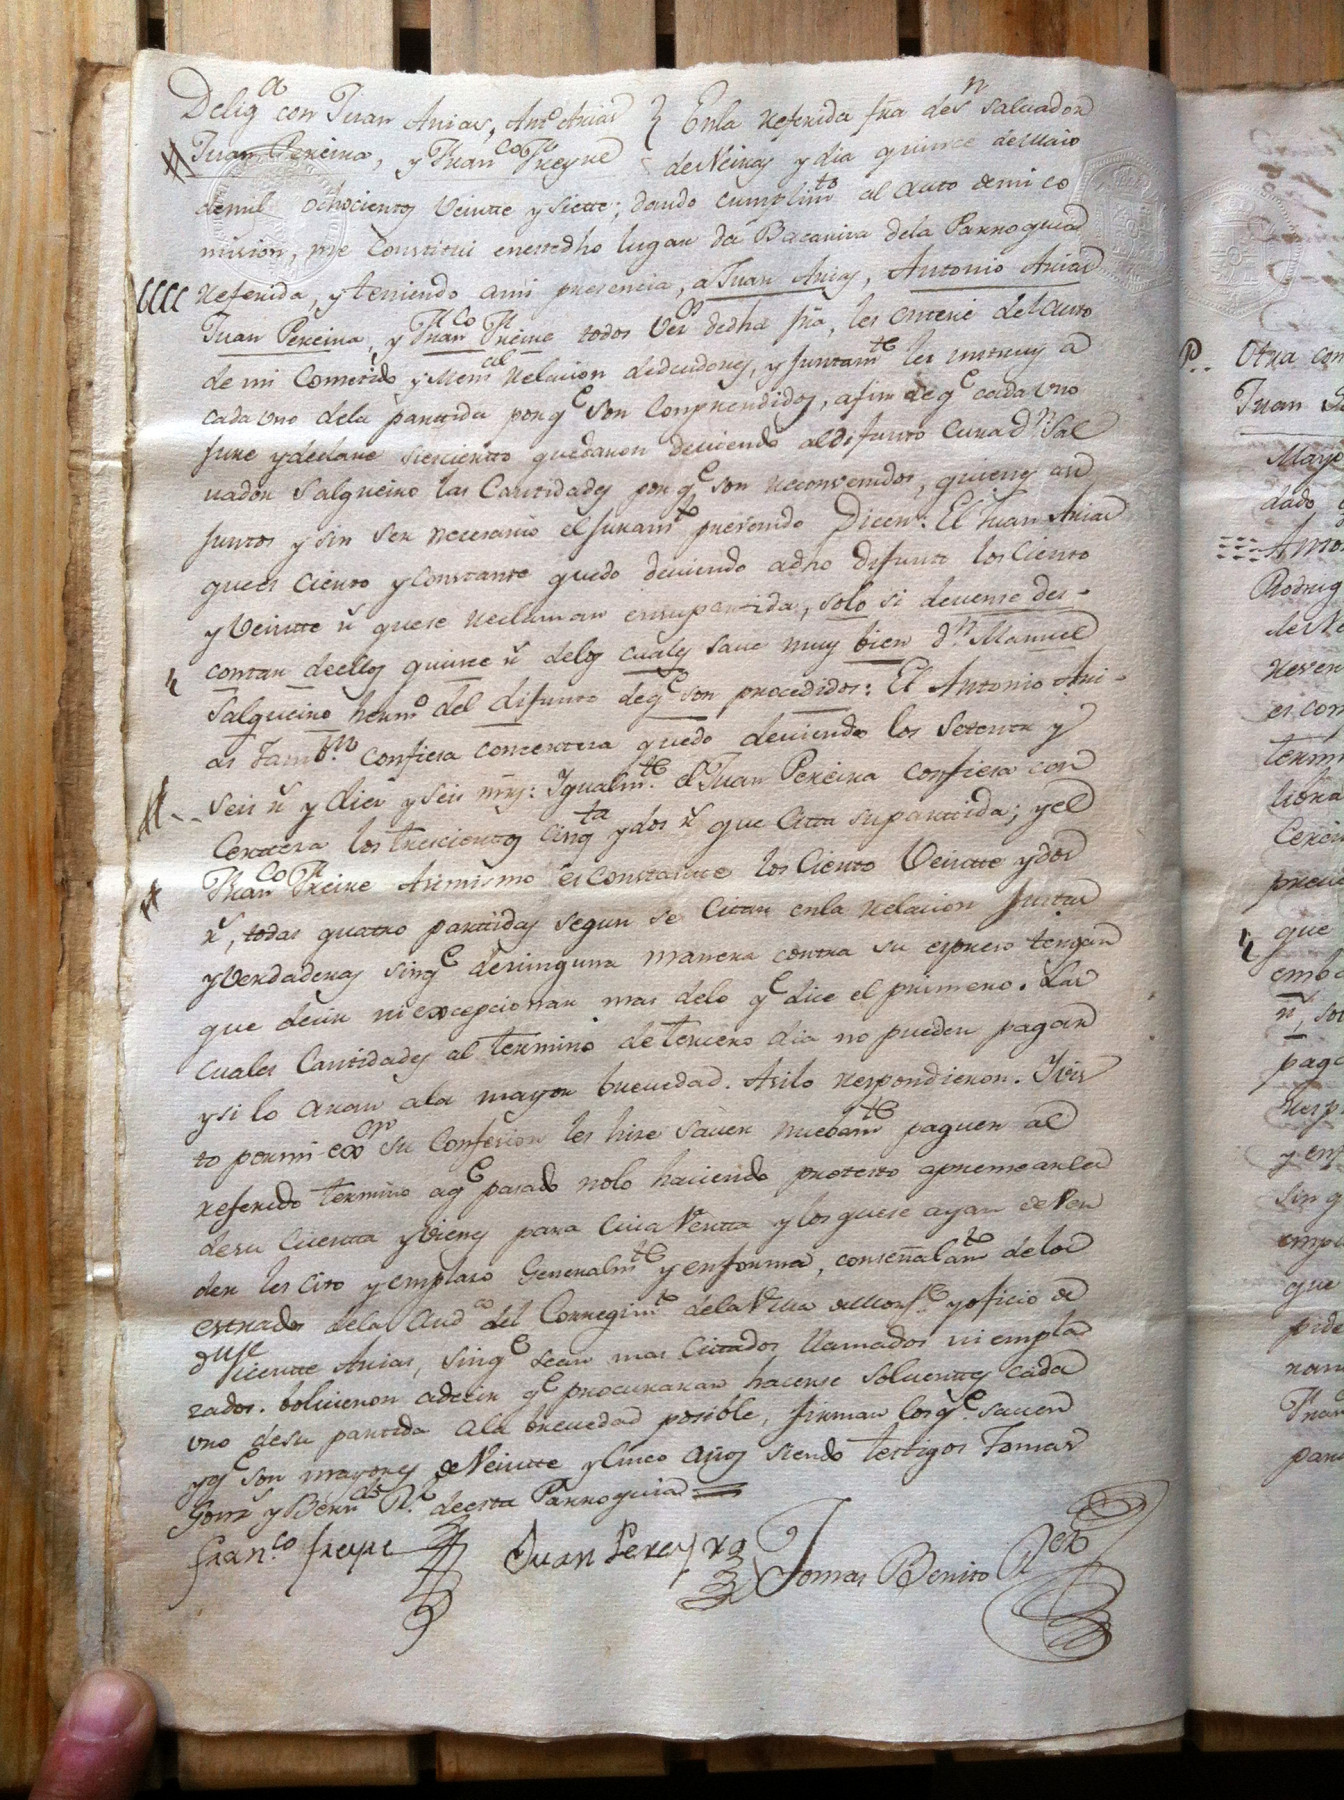 Delig.a con Juan Arias, Ant.o Arias } En la referida fra de S.n Salvador
Juan Pereira, y Fran.co Freyre de Neiras y dia quince de Maio
de mil ochocientos veintte y siette; dando cumplim.to al auto de mi co
mision, me constitui en este dho lugar da Bacariza de la Parroquia
referida, y teniendo a mi presencia, a Juan Arias, Antonio Arias
Juan Pereira, y Fran.co Freire todos vec.os de dha fra, les entere del auto
de mi Cometido y Mem.al relacion de deudores, y juntam.te les instruy a
cada uno de la parttida por q.e son conprendidos, a fin de q.e cada uno
jure y declare sies cientto quedaron deviendo al difunto Cura d.n Sal
vador Salgueiro las Cantidades por q.e son reconvenidos, quienes asi
juntos y sin ser necesario el juram.to prevenido Dicen: El Juan Arias
que es Cierto y Constante quedo deviendo a dho difunto los Ciento
y Veintte r.s que se reclaman en su partida, solo si devense des-
contar de ellos quince r.s de los cuales save muy bien d.n Manuel
Salgueiro herm.o del difunto de q.e son procedidos: El Antonio Ari-
as tam.bn confiesa con certera quedo deviendo los Setenta y
seis r.s y diez y seis mrs: Igualm.te el Juan Pereira confiesa con
Certtera los trescientos cinq.ta y dos r.s que Citta su parttida; y el
Fran.co Freire Asimismo es constante los Ciento Veintte y dos
r.s, todas quatro parttidas segun se Cittan en la relacion Justas
y Verdaderas sin q.e de ninguna manera contra su espreso tengan
que decir ni excepcionar mas de lo q.e dice el primero. Las
cuales Cantidades al termino de tercero dia no pueden pagar
y si lo aran a la mayor brevedad. Asilo respondieron. I vis
to por mi ess.no su Confesion les hize saver nuebam.te paguen al
referido termino a q.e pasado no lo haciendo protesto apremearles
de su Cuentta y vienes para Cuia Ventta y los que se ayan de ven
der les cito y emplazo Generalm.te y en forma, con señalam.to de los
estrados de la Aud.a del Corregim.to de la Villa de Monf.te y oficio de
Vicentte Arias, sin q.e sean mas Cittados llamados ni empla
zados. bolvieron a decir q.e procuraran hacerse solventtes cada
uno de su partida a la brevedad posible, firman los q.e saven
y q.e son mayores de Veintte y Cinco años siendo testigos Tomas
Gonz.s y Bern.do de esta Parroquia
Fran.co freyre Juan Pereyra Tomas Benito
Otra con
Juan
Mayo
dado
Rodrig
de Ne
es con
termi
que
emb
paga
resp
y en
sin q
empl
que
pide
Fran
part